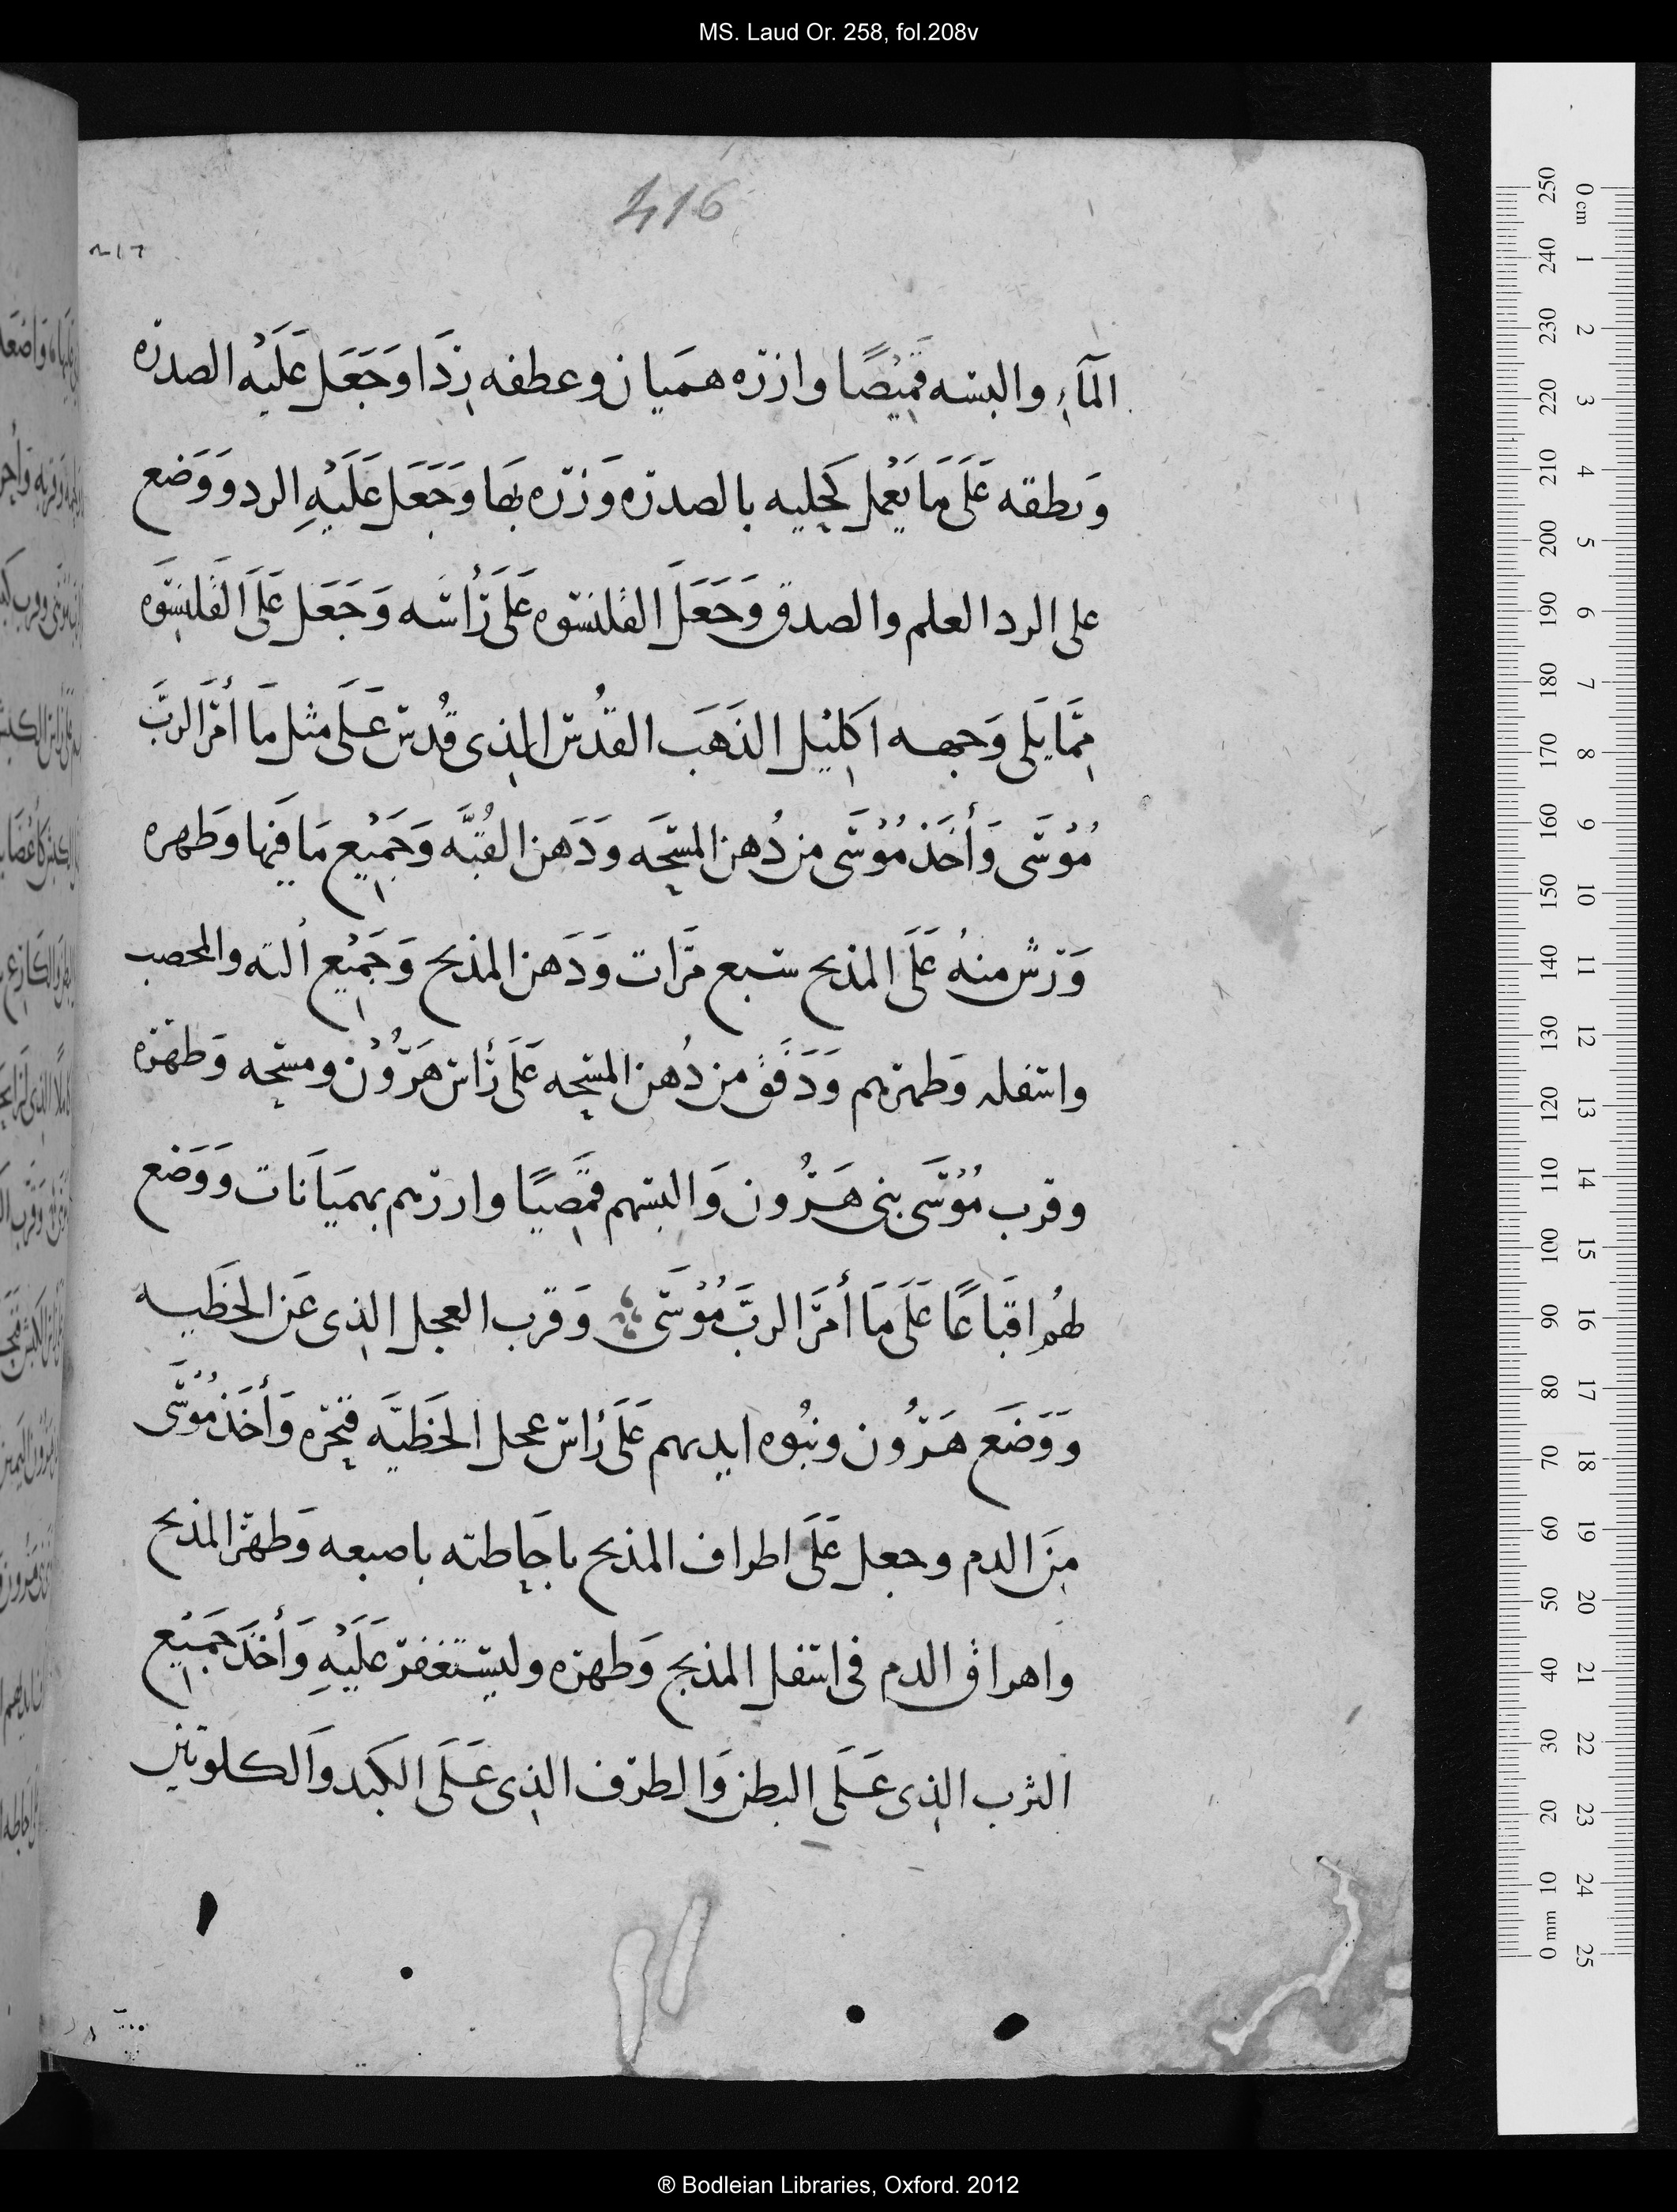 MS. Laud Or. 258, fol.208v
416
المآءِ والبسه قَمِيْصًا وازره هميان وعطفه رِدَا وَجَعَل عَلَيْه الصدره
وَنطقه عَلَى مَا يَعْمل كَحليه بالصدره وَزرّه بهَا وَجَعَل عَلَيْهِ الرد وَوَضع
على الرد العلم والصدق وَجَعَلَ القلنسوه عَلى رَأسه وَجَعَل عَلَى القَلنسَوه
مِمَّا يَلى وَجهه اكَلِيْل الذَهَب القدُس الذى قُدس عَلَى مثل ما أمَر الربَّ
مُوْسَى وَأَخَذ مُوْسَى من دُهن المسحَه وَدَهن القُبَّه وَجَمِيْع مَا فيها وطَهره
وَرش منهُ عَلَى المذبح سبع مَرات وَدَهن المذبح وَجَمِيْع الته والمحصب
واسفله وَطهرهم وَدَفَقَ من دُهن المسحه عَلَى رَأس هَرُوْن ومسحه وَطهره
وقرب مُوْسَى بنى هَرُون وَالبسهم قمَصِيًا وازرهم بهميَانَات وَوَضع
لهُم اقبَاعًا عَلَى مَا أمَرَ الربَّ مُوْسَى وَقرب العجل الذى عَن الخَطيه
وَوَضَع هَرُون وبنُوه ايديهم عَلَى رَأس عجل الخَطيَّه فنحره وَأَخَذ مُوْسَى
مِنَ الدم وجعل عَلَى اطراف المذبح باحَاطته باصبعه وَطهرَ المذبح
وَاهراق الدم فى اسفل المذبح وَطهره وليستغفر عَلَيْهِ وَأَخَذَ جَمِيْع
الثرب الذى عَلَى البطن وَالطرف الذى عَلَى الكَبد وَالكلوتين
0 cm 1 2 3 4 5 6 7 8 9 10 11 12 13 14 15 16 17 18 19 20 21 22 23 24 25
250 240 230 220 210 200 190 180 170 160 150 140 130 120 110 100 90 80 70 60 50 40 30 20 10 0 mm
® Bodleian Libraries, Oxford. 2012